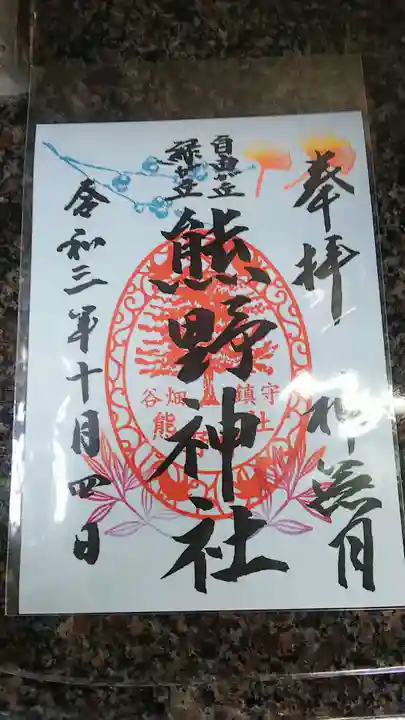 奉拝
神無月
自由が丘
緑が丘
熊野神社
谷畑 鎮守
熊 社
令和三年十月四日